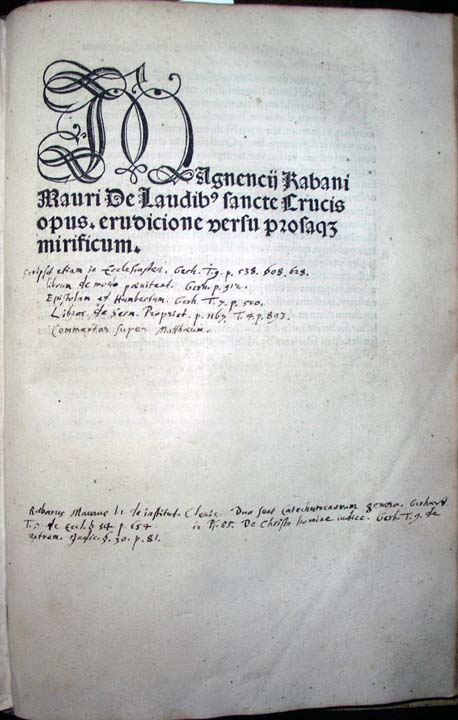 Magnencij Rabani
Mauri De Laudibꝰ sancte Crucis
opus. erudicione versu prosaqꝫ
mirificum.
Scripsit etiam in Ecclesiasten. Gerh. T. 9. p. 538. 608. 628.
librum de modo pœnitent. Gerh. p. 312.
Epistolam ad Humbertum. Gerh. T. 7. p. 500.
Libros de Serm. Propriet. p. 1167. T. 4. p. 893.
Commentar. super Matthæum.
Rabanus Maurus l. 1. de institut. Cleric. Duo sunt catechumenorum genera. Gerhard
T. 5. de Eccl. § 54 p. 654 in Ps. 85. De Christo homine iudice. Gerh. T. 9. de
extrem. Judic. § 30. p. 81.